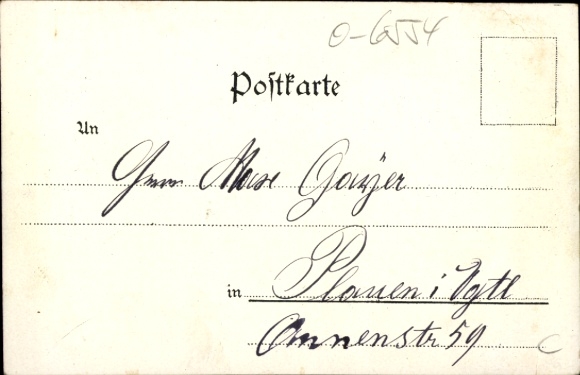 O-6554
Postkarte
An
Herrn Max Gayer
in Plauen i Vgtl
Annenstr 59